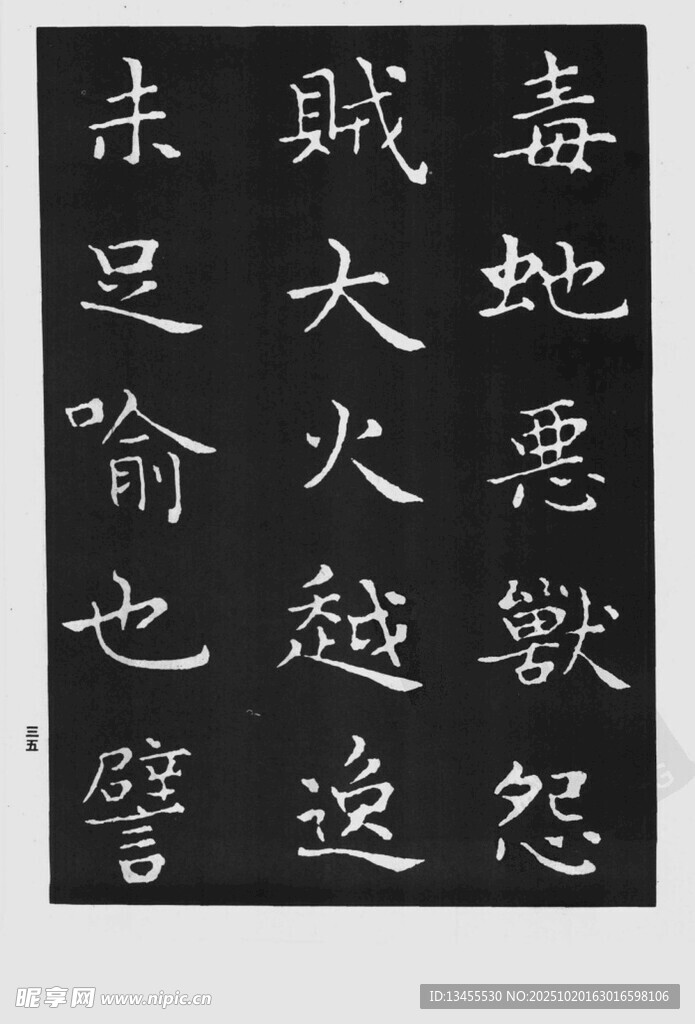 毒蛇恶獸怨
賊大火越逸
未足喻也譬
三五
昵享网 www.nipic.cn
ID:13455530 NO:20251020163016598106